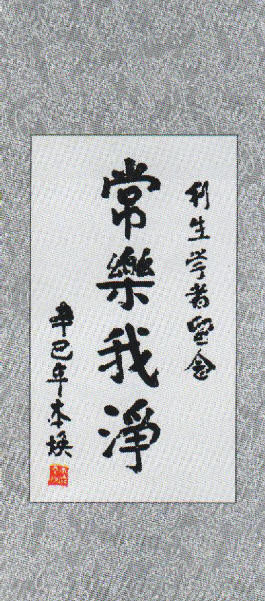 利生学者留念
常樂我淨
辛巳年本煥